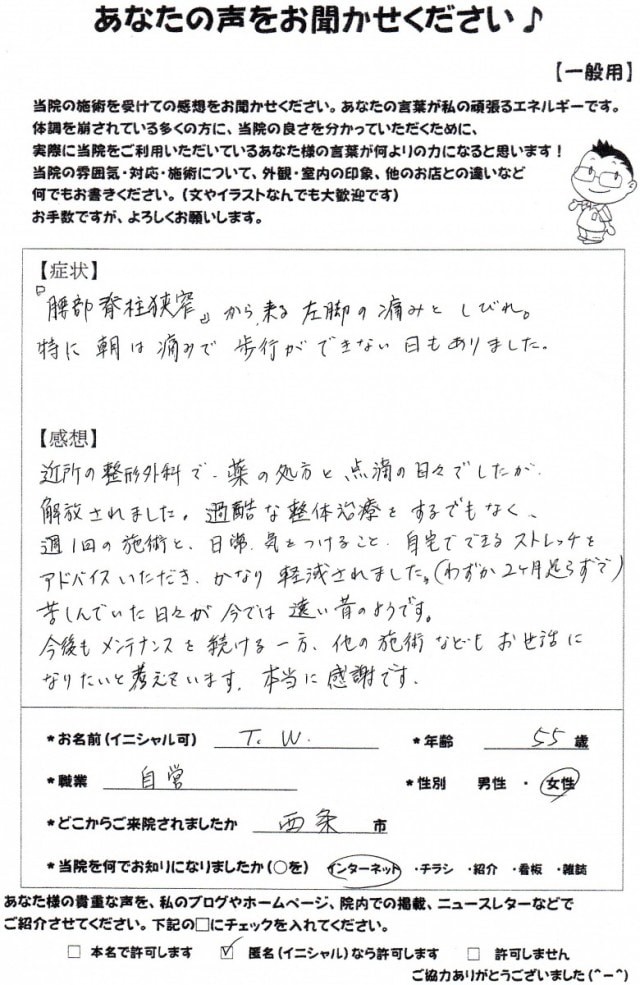 あなたの声をお聞かせください♪
【一般用】
当院の施術を受けての感想をお聞かせください。あなたの言葉が私の頑張るエネルギーです。
体調を崩されている多くの方に、当院の良さを分かっていただくために、
実際に当院をご利用いただいているあなた様の言葉が何よりの力になると思います！
当院の雰囲気・対応・施術について、外観・室内の印象、他のお店との違いなど
何でもお書きください。（文やイラストなんでも大歓迎です）
お手数ですが、よろしくお願いします。
【症状】
『腰部脊柱狭窄』から来る左脚の痛みとしびれ。
特に朝は痛みで歩行ができない日もありました。
【感想】
近所の整形外科で、薬の処方と点滴の日々でしたが、
解放されました。過酷な整体治療をするでもなく、
週1回の施術と、日常、気をつけること、自宅でできるストレッチを
アドバイスいただき、かなり軽減されました。（わずか2ヶ月足らずで）
苦しんでいた日々が今では遠い昔のようです。
今後もメンテナンスを続ける一方、他の施術などもお世話に
なりたいと考えています。本当に感謝です。
*お名前（イニシャル可） T. W. *年齢 55 歳
*職業 自営 *性別 男性 ・ 女性
*どこからご来院されましたか 西条 市
*当院を何でお知りになりましたか（○を） インターネット ・チラシ ・紹介 ・看板 ・雑誌
あなた様の貴重な声を、私のブログやホームページ、院内での掲載、ニュースレターなどで
ご紹介させてください。下記の□にチェックを入れてください。
□ 本名で許可します ☑ 匿名（イニシャル）なら許可します □ 許可しません
ご協力ありがとうございました（^－^）